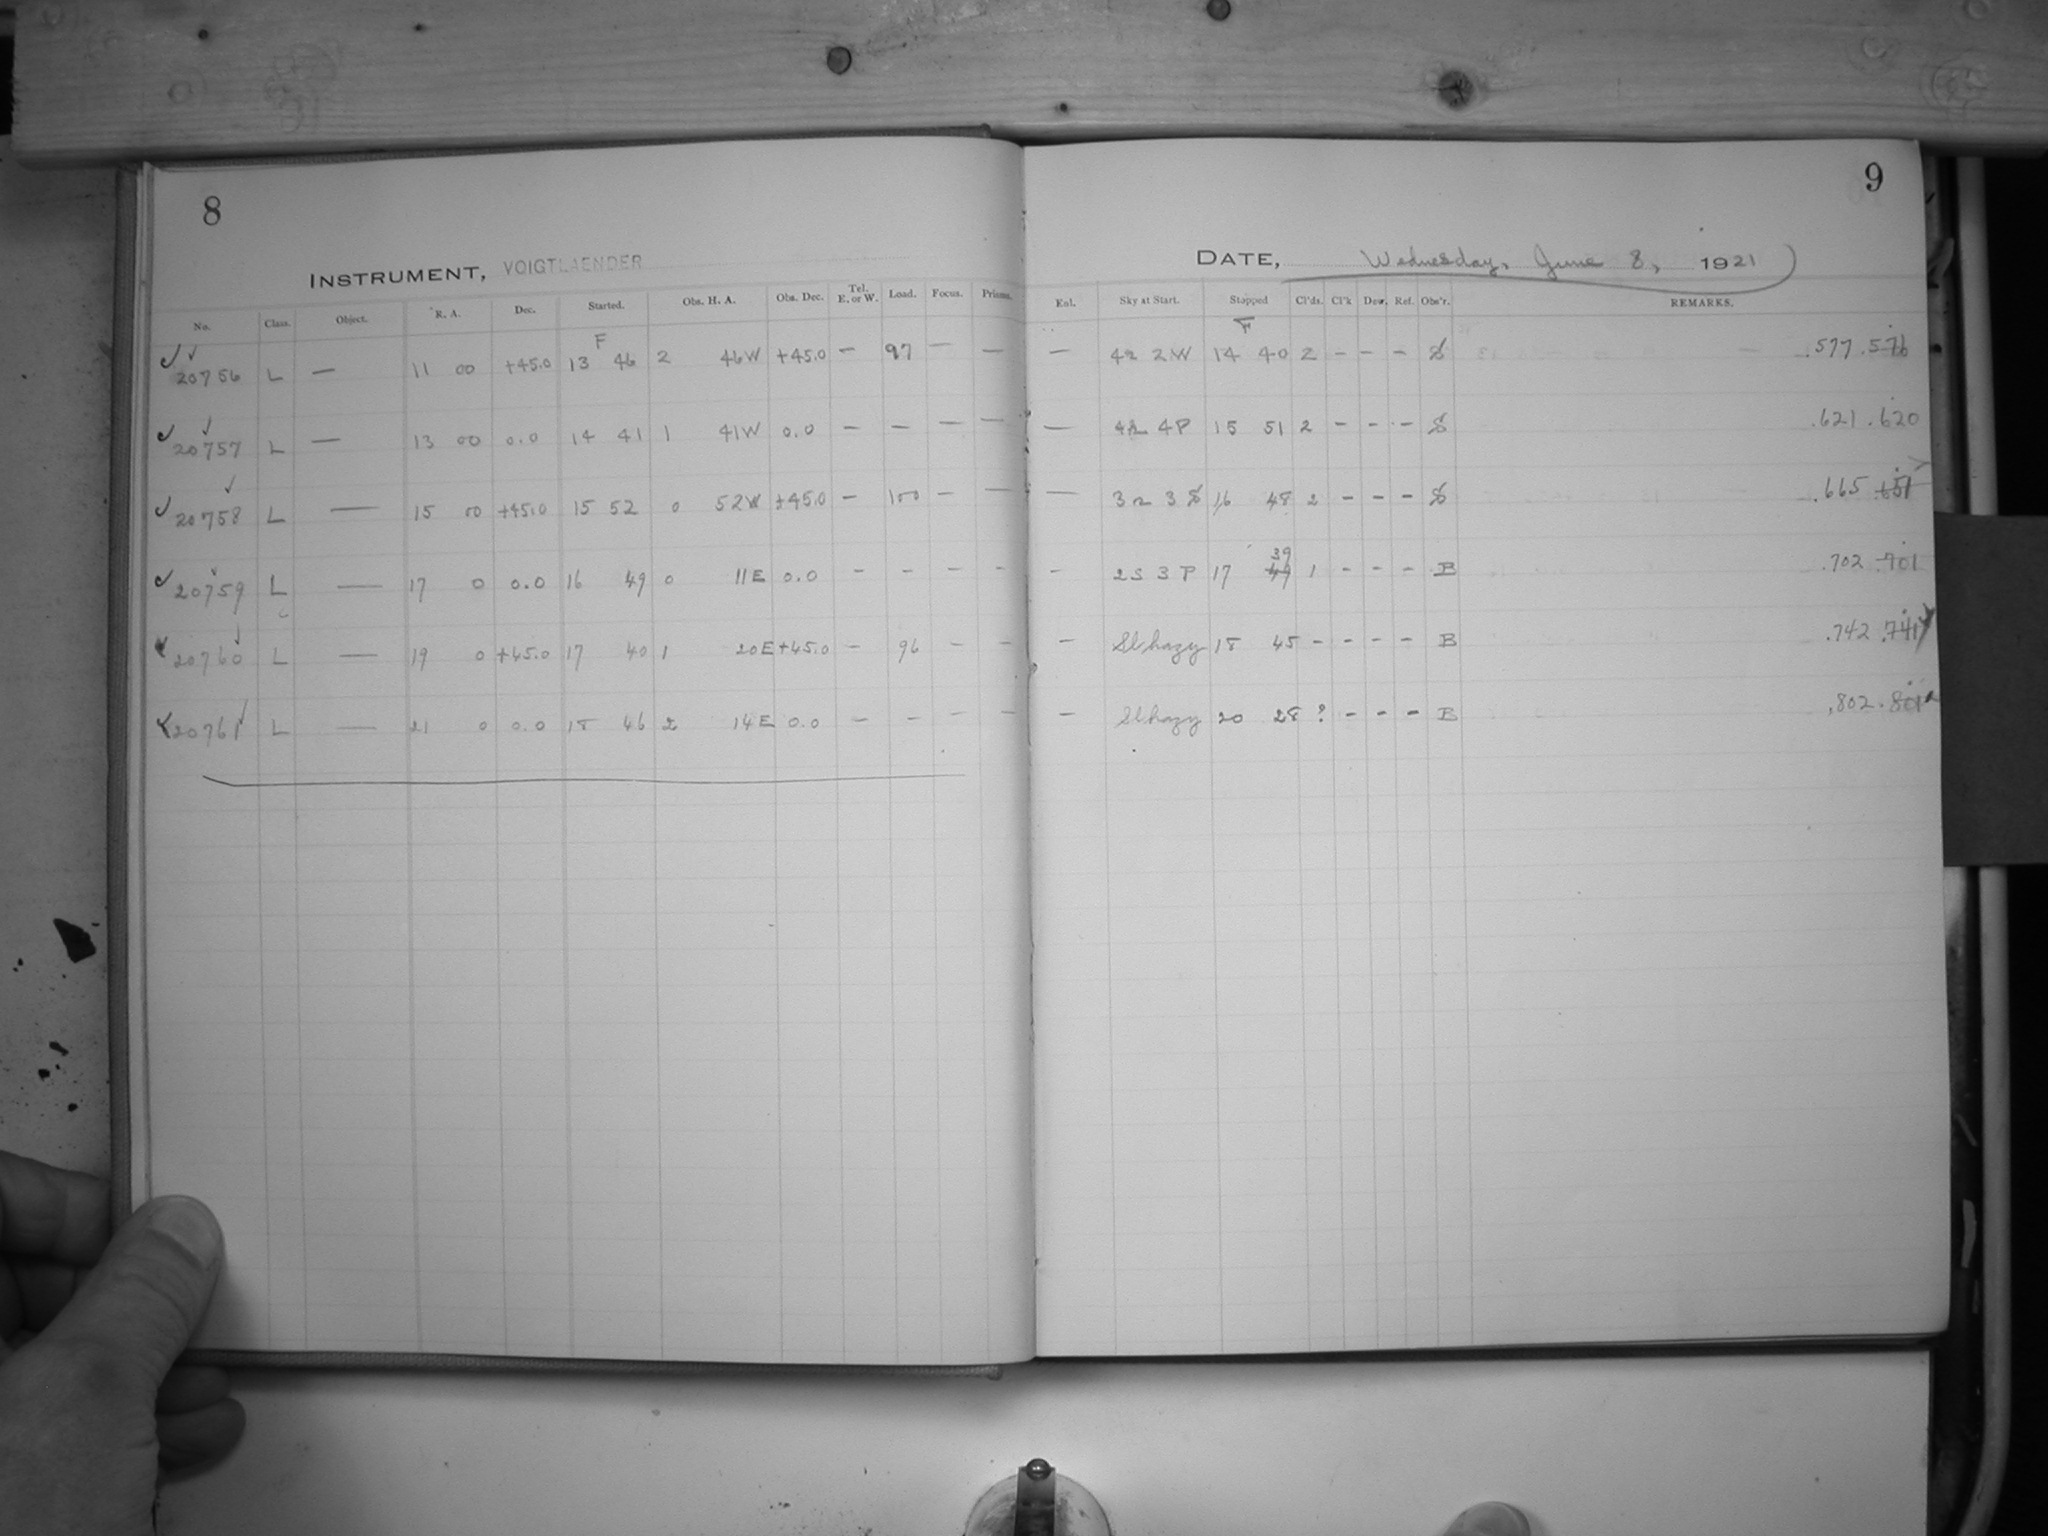 8
INSTRUMENT, VOIGTLAENDER
No. Class. Object. R. A. Dec. Started. Obs. H. A. Obs. Dec. Tel. E. or W. Load. Focus. Prisms.
F
20756 L — 11 00 +45.0 13 46 2 46W +45.0 — 97 — —
20757 L — 13 00 0.0 14 41 1 41W 0.0 — — — —
20758 L — 15 00 +45.0 15 52 0 52W +45.0 — 100 — —
20759 L — 17 0 0.0 16 49 0 11E 0.0 - - - -
20760 L — 19 0 +45.0 17 40 1 20E +45.0 — 96 - -
20761 L — 21 0 0.0 18 46 2 14E 0.0 - - - -
9
DATE, Wednesday, June 8, 1921
Enl. Sky at Start. Stopped Cl'ds. Cl'k Dew. Ref. Obs'r. REMARKS.
F
— 42 2W 14 40 2 - - - S .577 .576
— 4P 15 51 2 - - - S .621 .620
— 16 48 2 - - - S .665 .651
- 2S 3P 17 39 49 1 - - - B .702 .701
- Sl hazy 18 45 - - - - B .742 .741
- Sl hazy 20 28 ? - - - B .802 .801